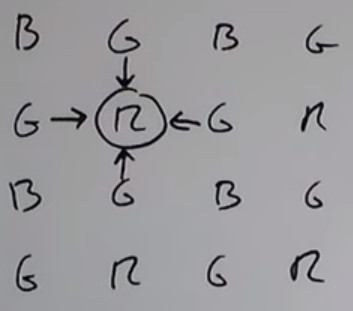 B G B G
G → R ← G R
B G B G
G R G R